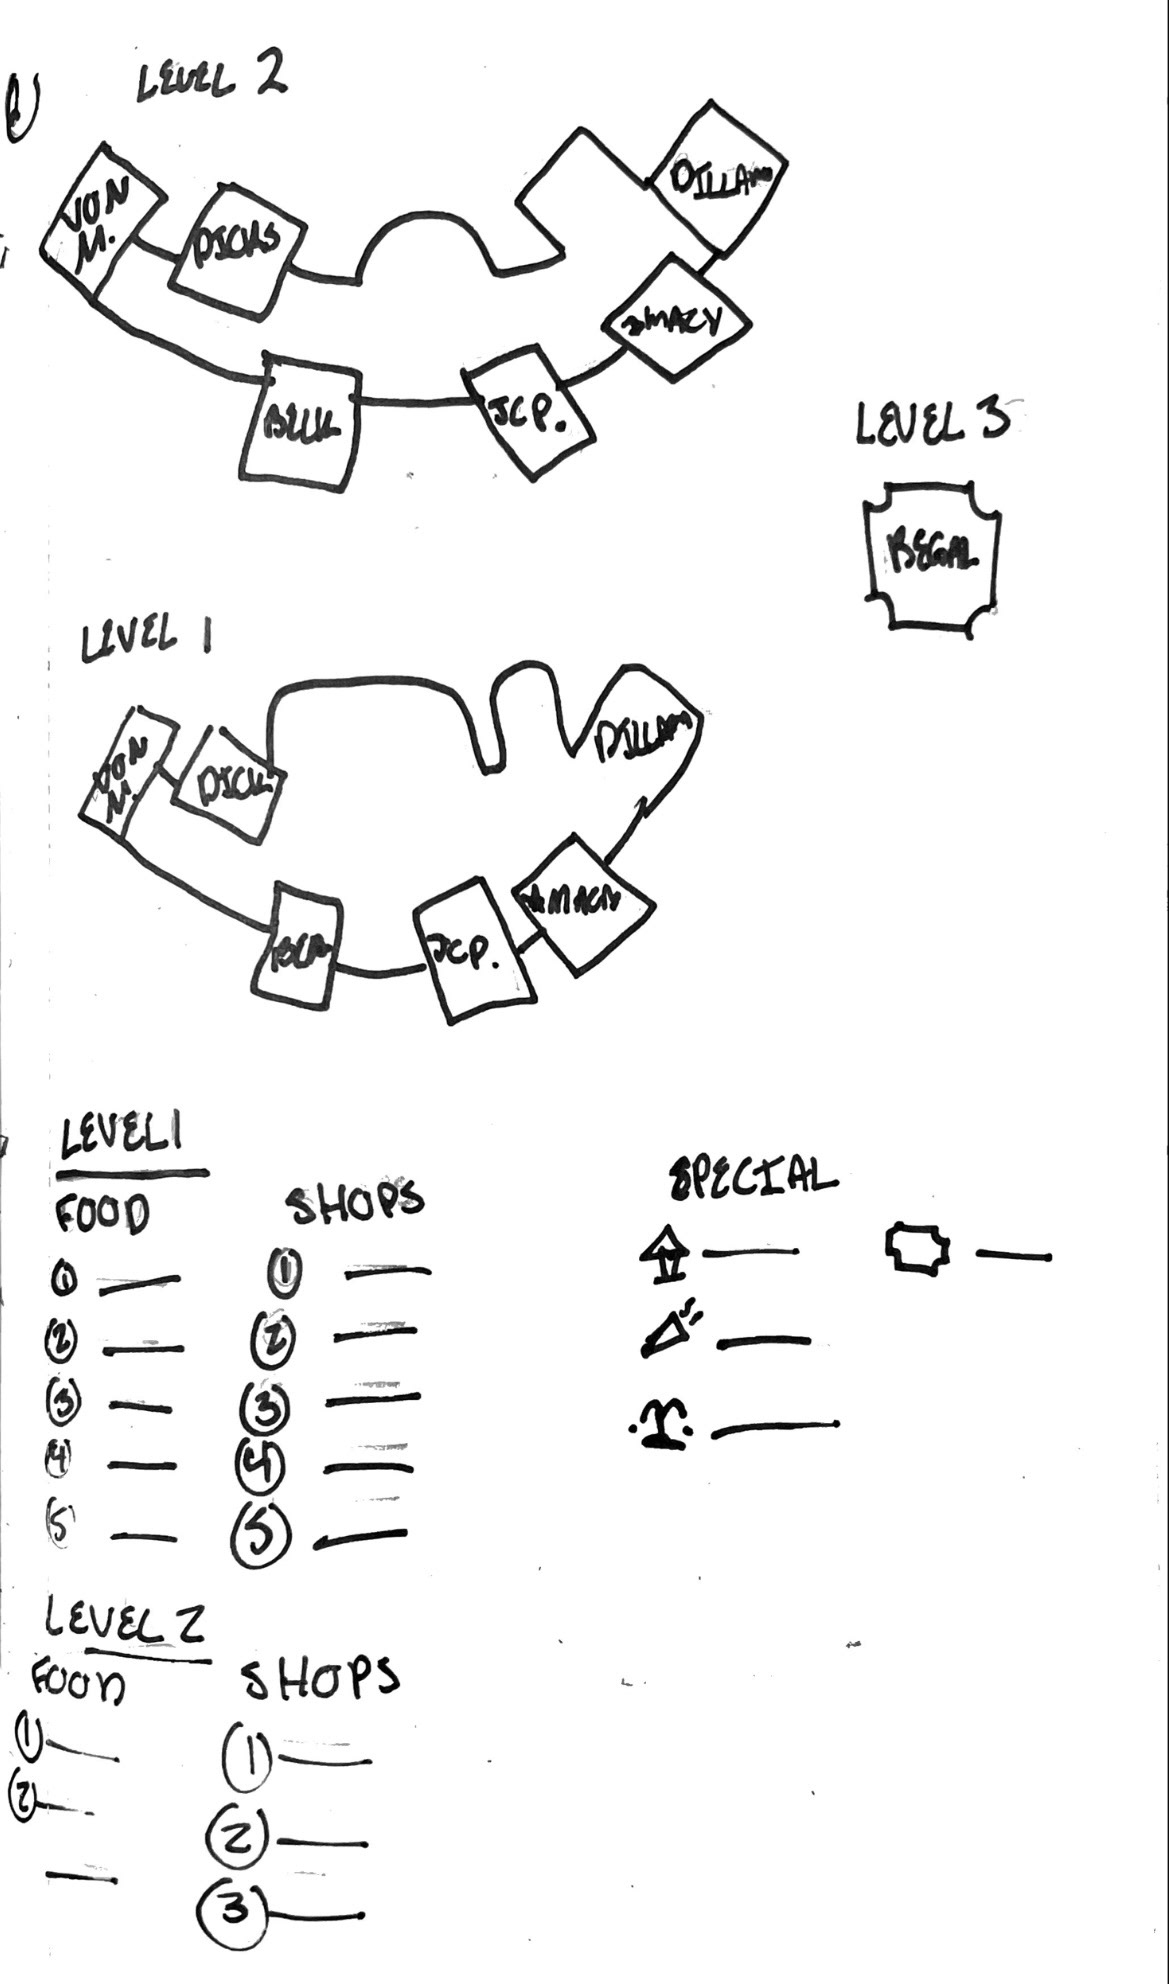 LEVEL 2
VON
M.
DICKS
DILLARD
MACY
BELK
JCP.
LEVEL 3
REGAL
LEVEL 1
VON
M.
DICK
DILLARD
MACY
JCP.
LEVEL 1
FOOD SHOPS
1 1
2 2
3 3
4 4
5 5
SPECIAL
LEVEL 2
FOOD SHOPS
1 1
2 2
3